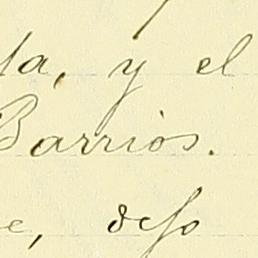 la, y el
Barrios.
e, deso